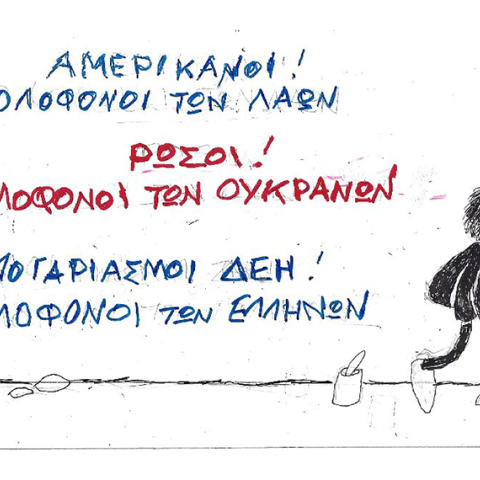 ΑΜΕΡΙΚΑΝΟΙ!
ΟΛΟΦΟΝΟΙ ΤΩΝ ΛΑΩΝ
ΡΩΣΟΙ!
ΛΟΦΟΝΟΙ ΤΩΝ ΟΥΚΡΑΝΩΝ
ΛΟΓΑΡΙΑΣΜΟΙ ΔΕΗ!
ΛΟΦΟΝΟΙ ΤΩΝ ΕΛΛΗΝΩΝ